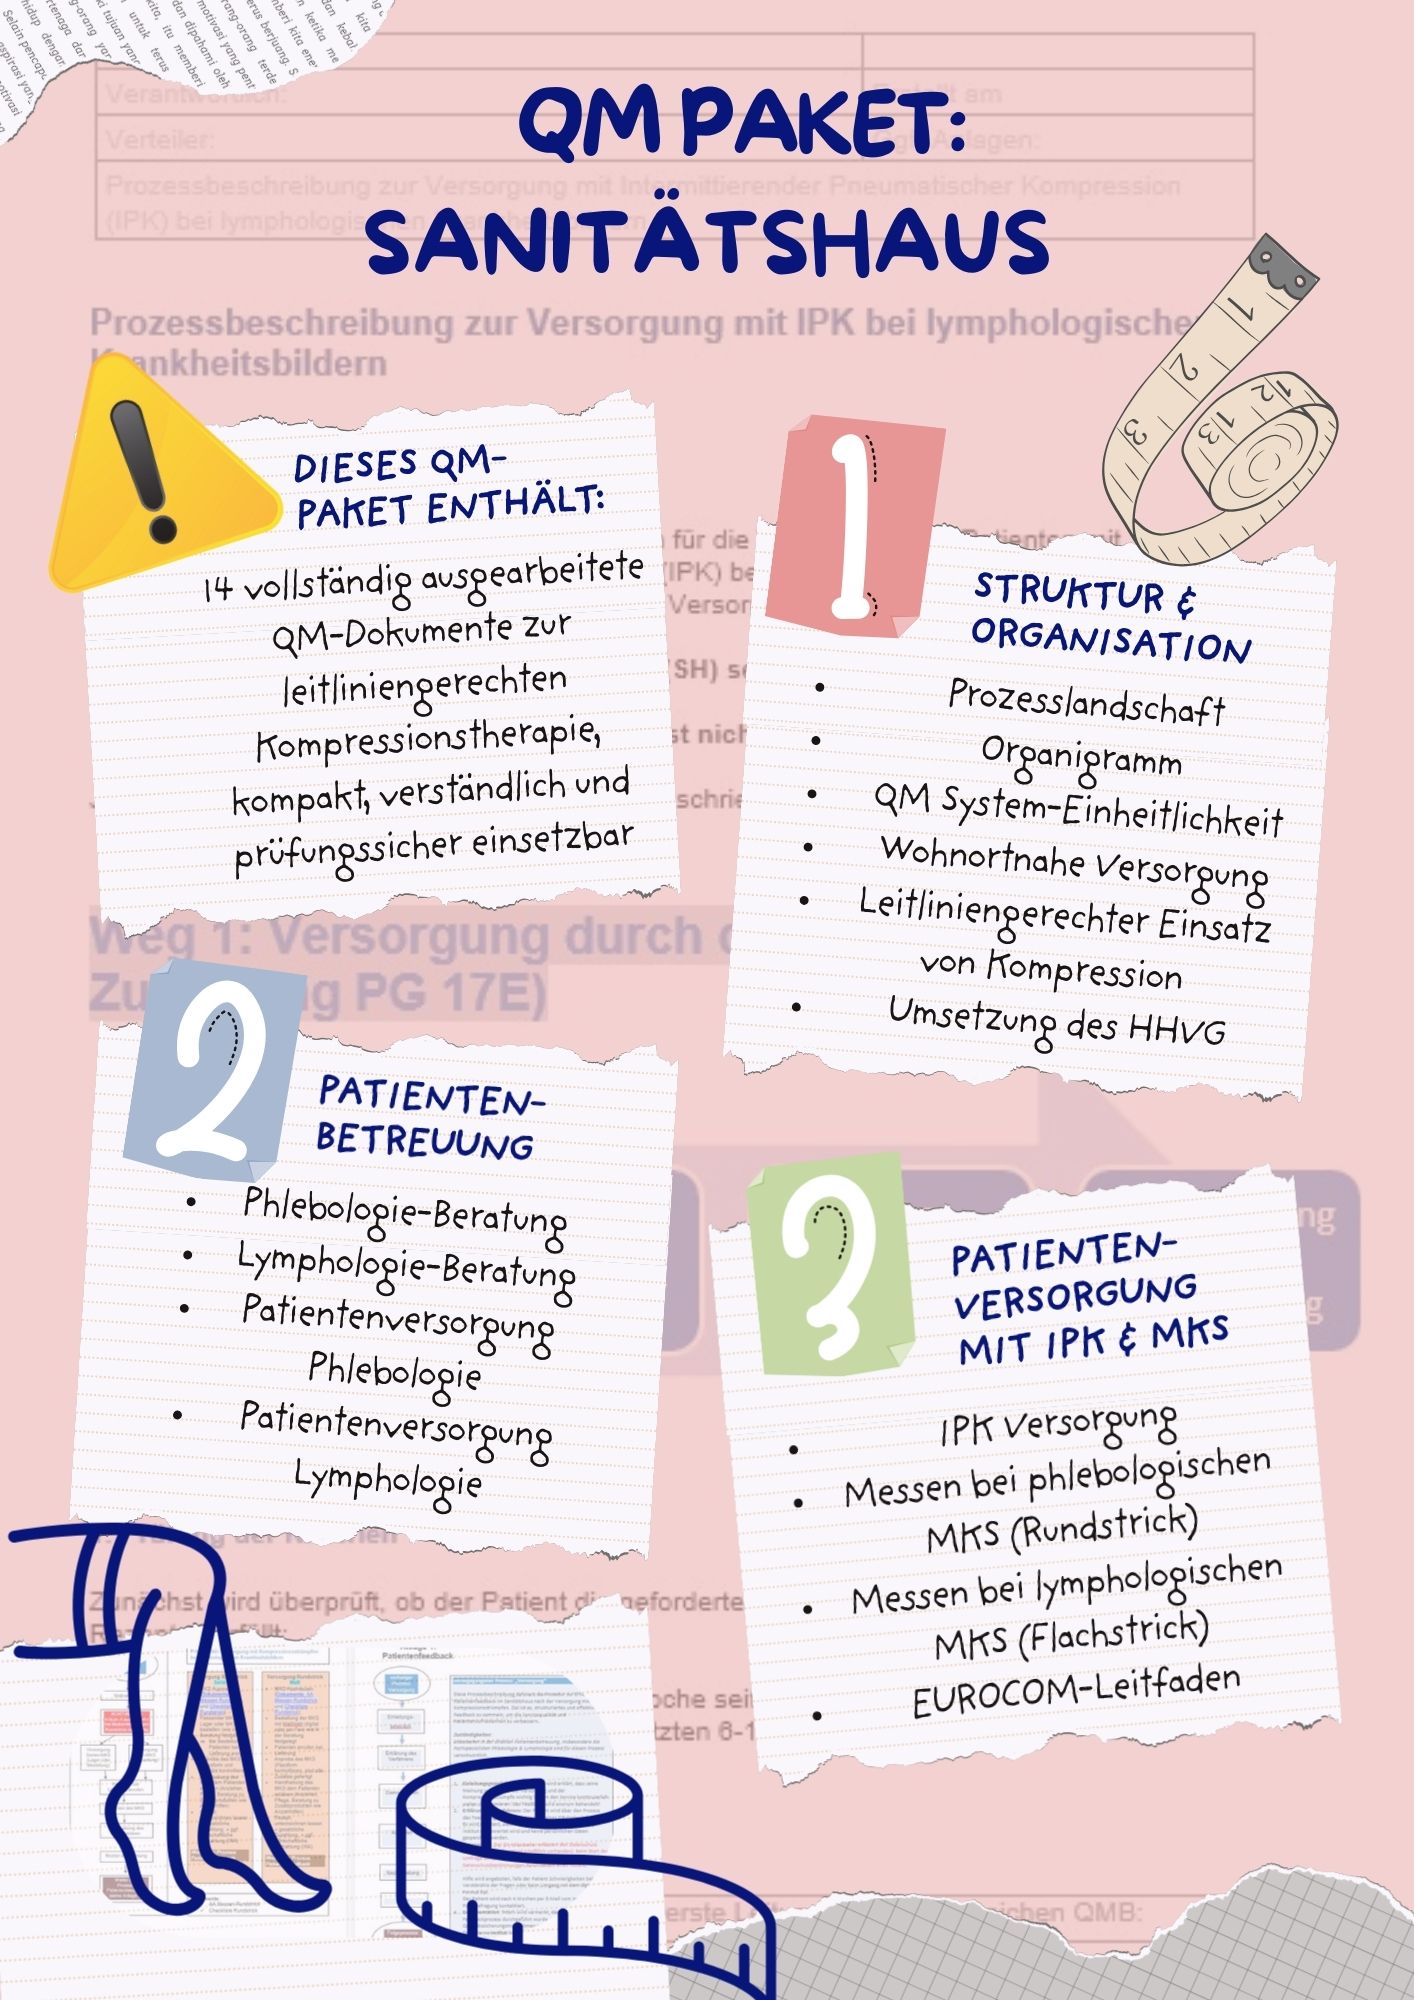 QM PAKET:
SANITÄTSHAUS
Verteiler:
Prozessbeschreibung zur Versorgung mit Intermittierender Pneumatischer Kompression
Prozessbeschreibung zur Versorgung mit IPK bei lymphologische
DIESES QM-
PAKET ENTHÄLT:
14 vollständig ausgearbeitete
QM-Dokumente zur
leitliniengerechten
Kompressionstherapie,
kompakt, verständlich und
prüfungssicher einsetzbar
1
STRUKTUR &
ORGANISATION
• Prozesslandschaft
• Organigramm
• QM System-Einheitlichkeit
• Wohnortnahe Versorgung
• Leitliniengerechter Einsatz
von Kompression
• Umsetzung des HHVG
Weg 1: Versorgung durch
PG 17E)
2
PATIENTEN-
BETREUUNG
• Phlebologie-Beratung
• Lymphologie-Beratung
• Patientenversorgung
Phlebologie
• Patientenversorgung
Lymphologie
?
PATIENTEN-
VERSORGUNG
MIT IPK & MKS
• IPK Versorgung
• Messen bei phlebologischen
MKS (Rundstrick)
• Messen bei lymphologischen
MKS (Flachstrick)
• EUROCOM-Leitfaden
wird überprüft, ob der Patient
Patientenfeedback
QMB: